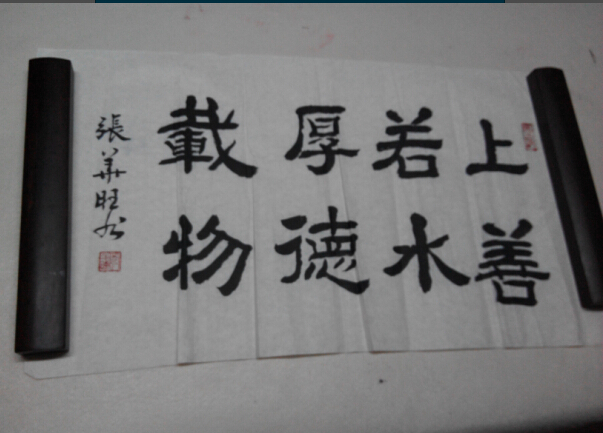 上善
若水
厚德
載物
張華旺